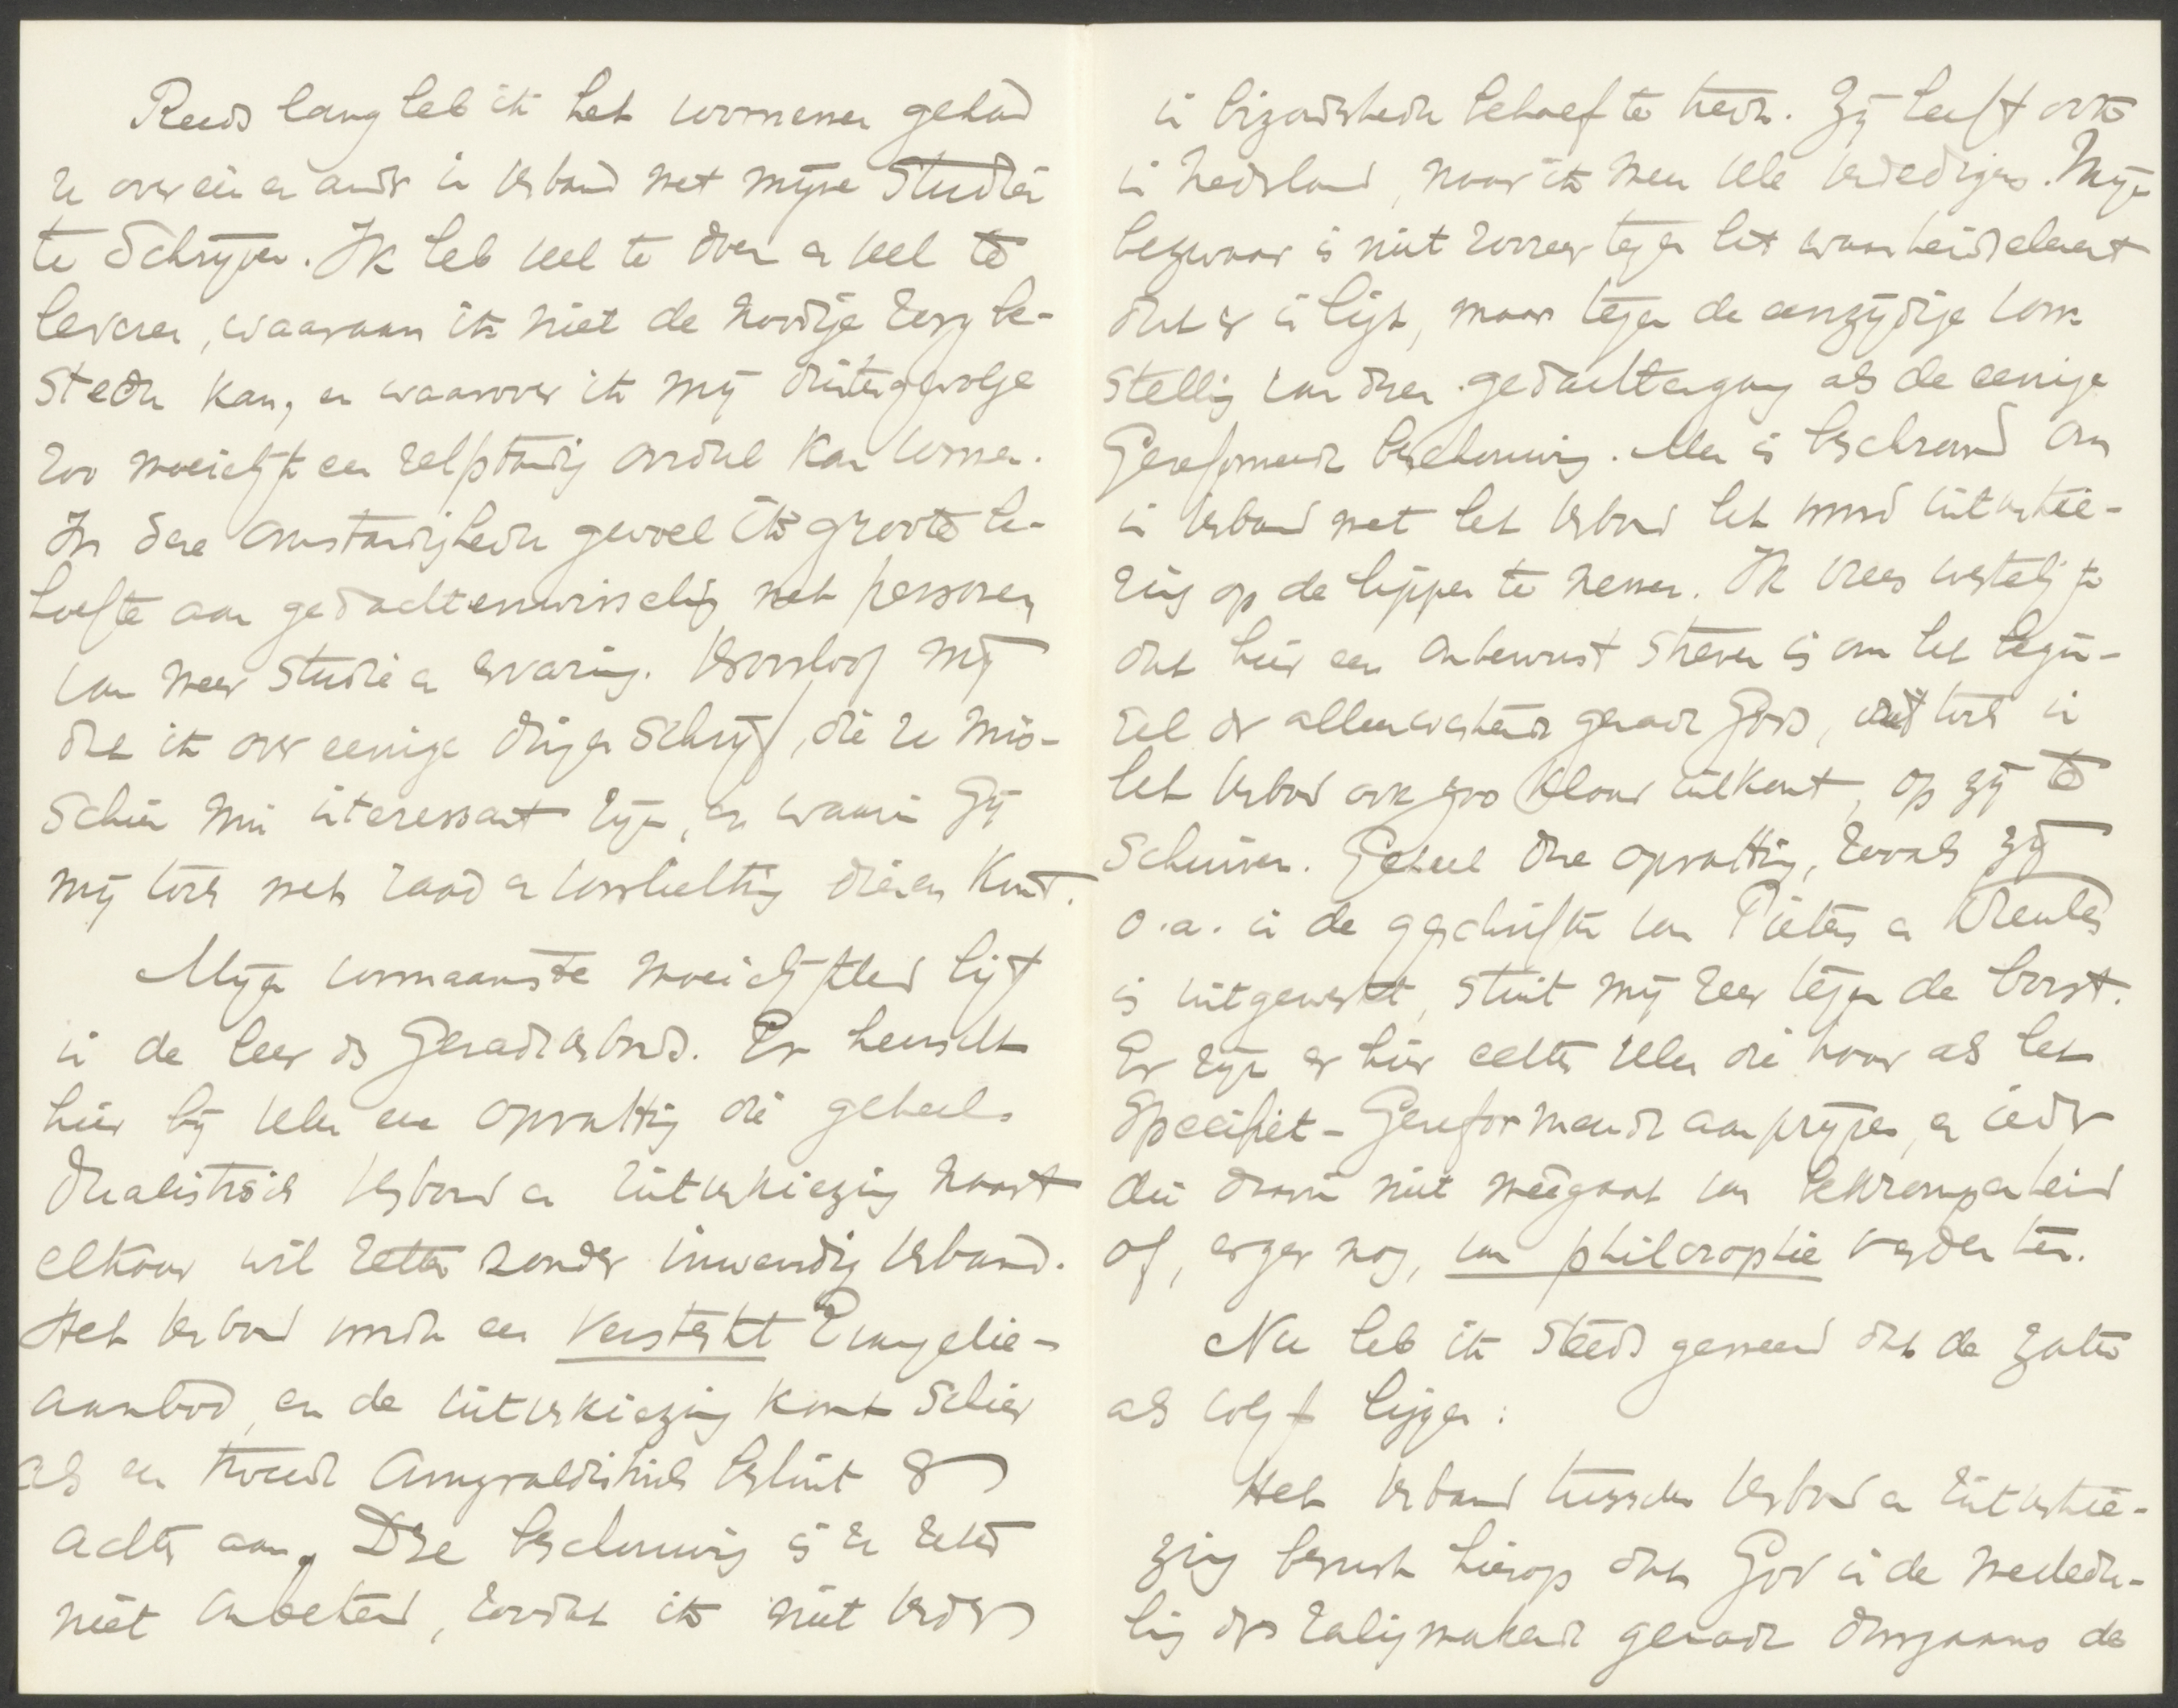 Reeds lang heb ik het voornemen gehad
U over een en ander in verband met mijne Studiën
te Schrijven. Ik heb veel te doen en veel te
leveren, waaraan ik niet de noodige zorg be-
steden kan, en waarover ik mij dientengevolge
zoo moeielijk een zelfstandig oordeel kan vormen.
In deze omstandigheden gevoel ik groote be-
hoefte aan gedachtenwisseling met personen
van meer studie en ervaring. Veroorloof mij
dat ik over eenige dingen schrijf, die U mis-
schien min interessant zijn, en waarin Gij
mij toch met raad en voorlichting dienen kunt.
Mijn voornaamste moeielijkheid ligt
in de leer des Genadeverbonds. Er heerscht
hier bij velen een opvatting die geheel
dualistisch Verbond en uitverkiezing naast
elkaar wil zetten zonder inwendig verband.
Het Verbond wordt een versterkt Evangelie-
aanbod, en de uitverkiezing komt schier
als een tweede Amyraldistisch besluit er
achter aan. Deze beschouwing is U zeker
niet onbekend, zoodat ik niet verder
in bizonderheden behoef te treden. Zij heeft ook
in Nederland, naar ik meen vele verdedigers. Mijn
bezwaar is niet zoozeer tegen het waarheidselement
dat er in ligt, maar tegen de eenzijdige voor-
stelling van dien gedachtengang als de eenige
Gereformeerde beschouwing. Men is beschroomd om
in verband met het Verbond het woord uitverkie-
zing op de lippen te nemen. Ik vrees werkelijk
dat hier een onbewust streven is om het begin-
sel der alleenwerkende genade Gods, dat toch in
het Verbond ook zoo klaar uitkomt, op zij te
schuiven. Geheel die opvatting, zooals zij
o.a. in de geschriften van Pieters en Kreulen
is uitgewerkt, stuit mij zeer tegen de borst.
Er zijn er hier echter velen die haar als het
Specifiek-Gereformeerde aanprijzen, en ieder
die daarin niet meêgaat van bekrompenheid
of, erger nog, van philosophie verdenken.
Nu heb ik steeds gemeend dat de zaken
als volgt liggen:
Het verband tusschen Verbond en uitverkie-
zing berust hierop dat God in de mededee-
ling der zaligmakende genade doorgaans de